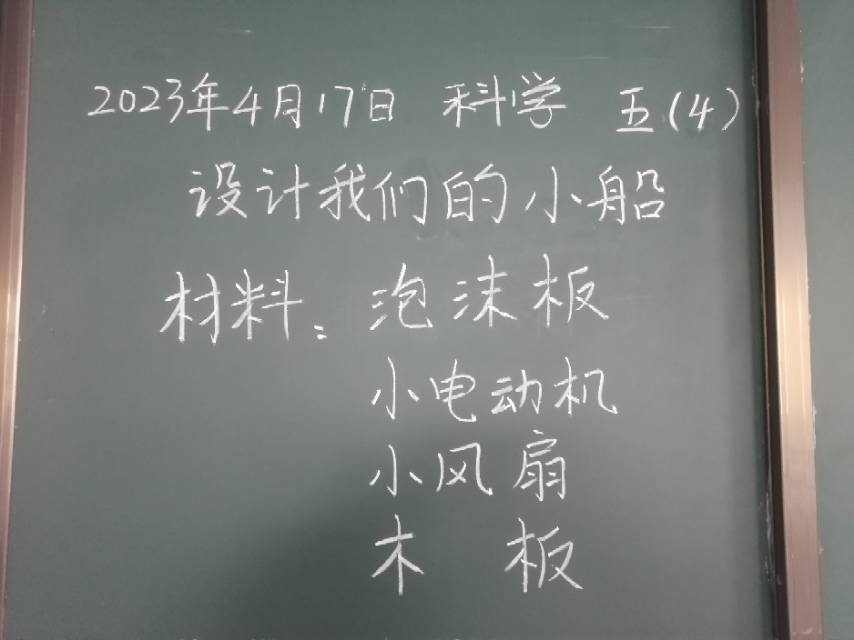 2023年4月17日 科学 五(4)
设计我们的小船
材料：泡沫板
小电动机
小风扇
木 板